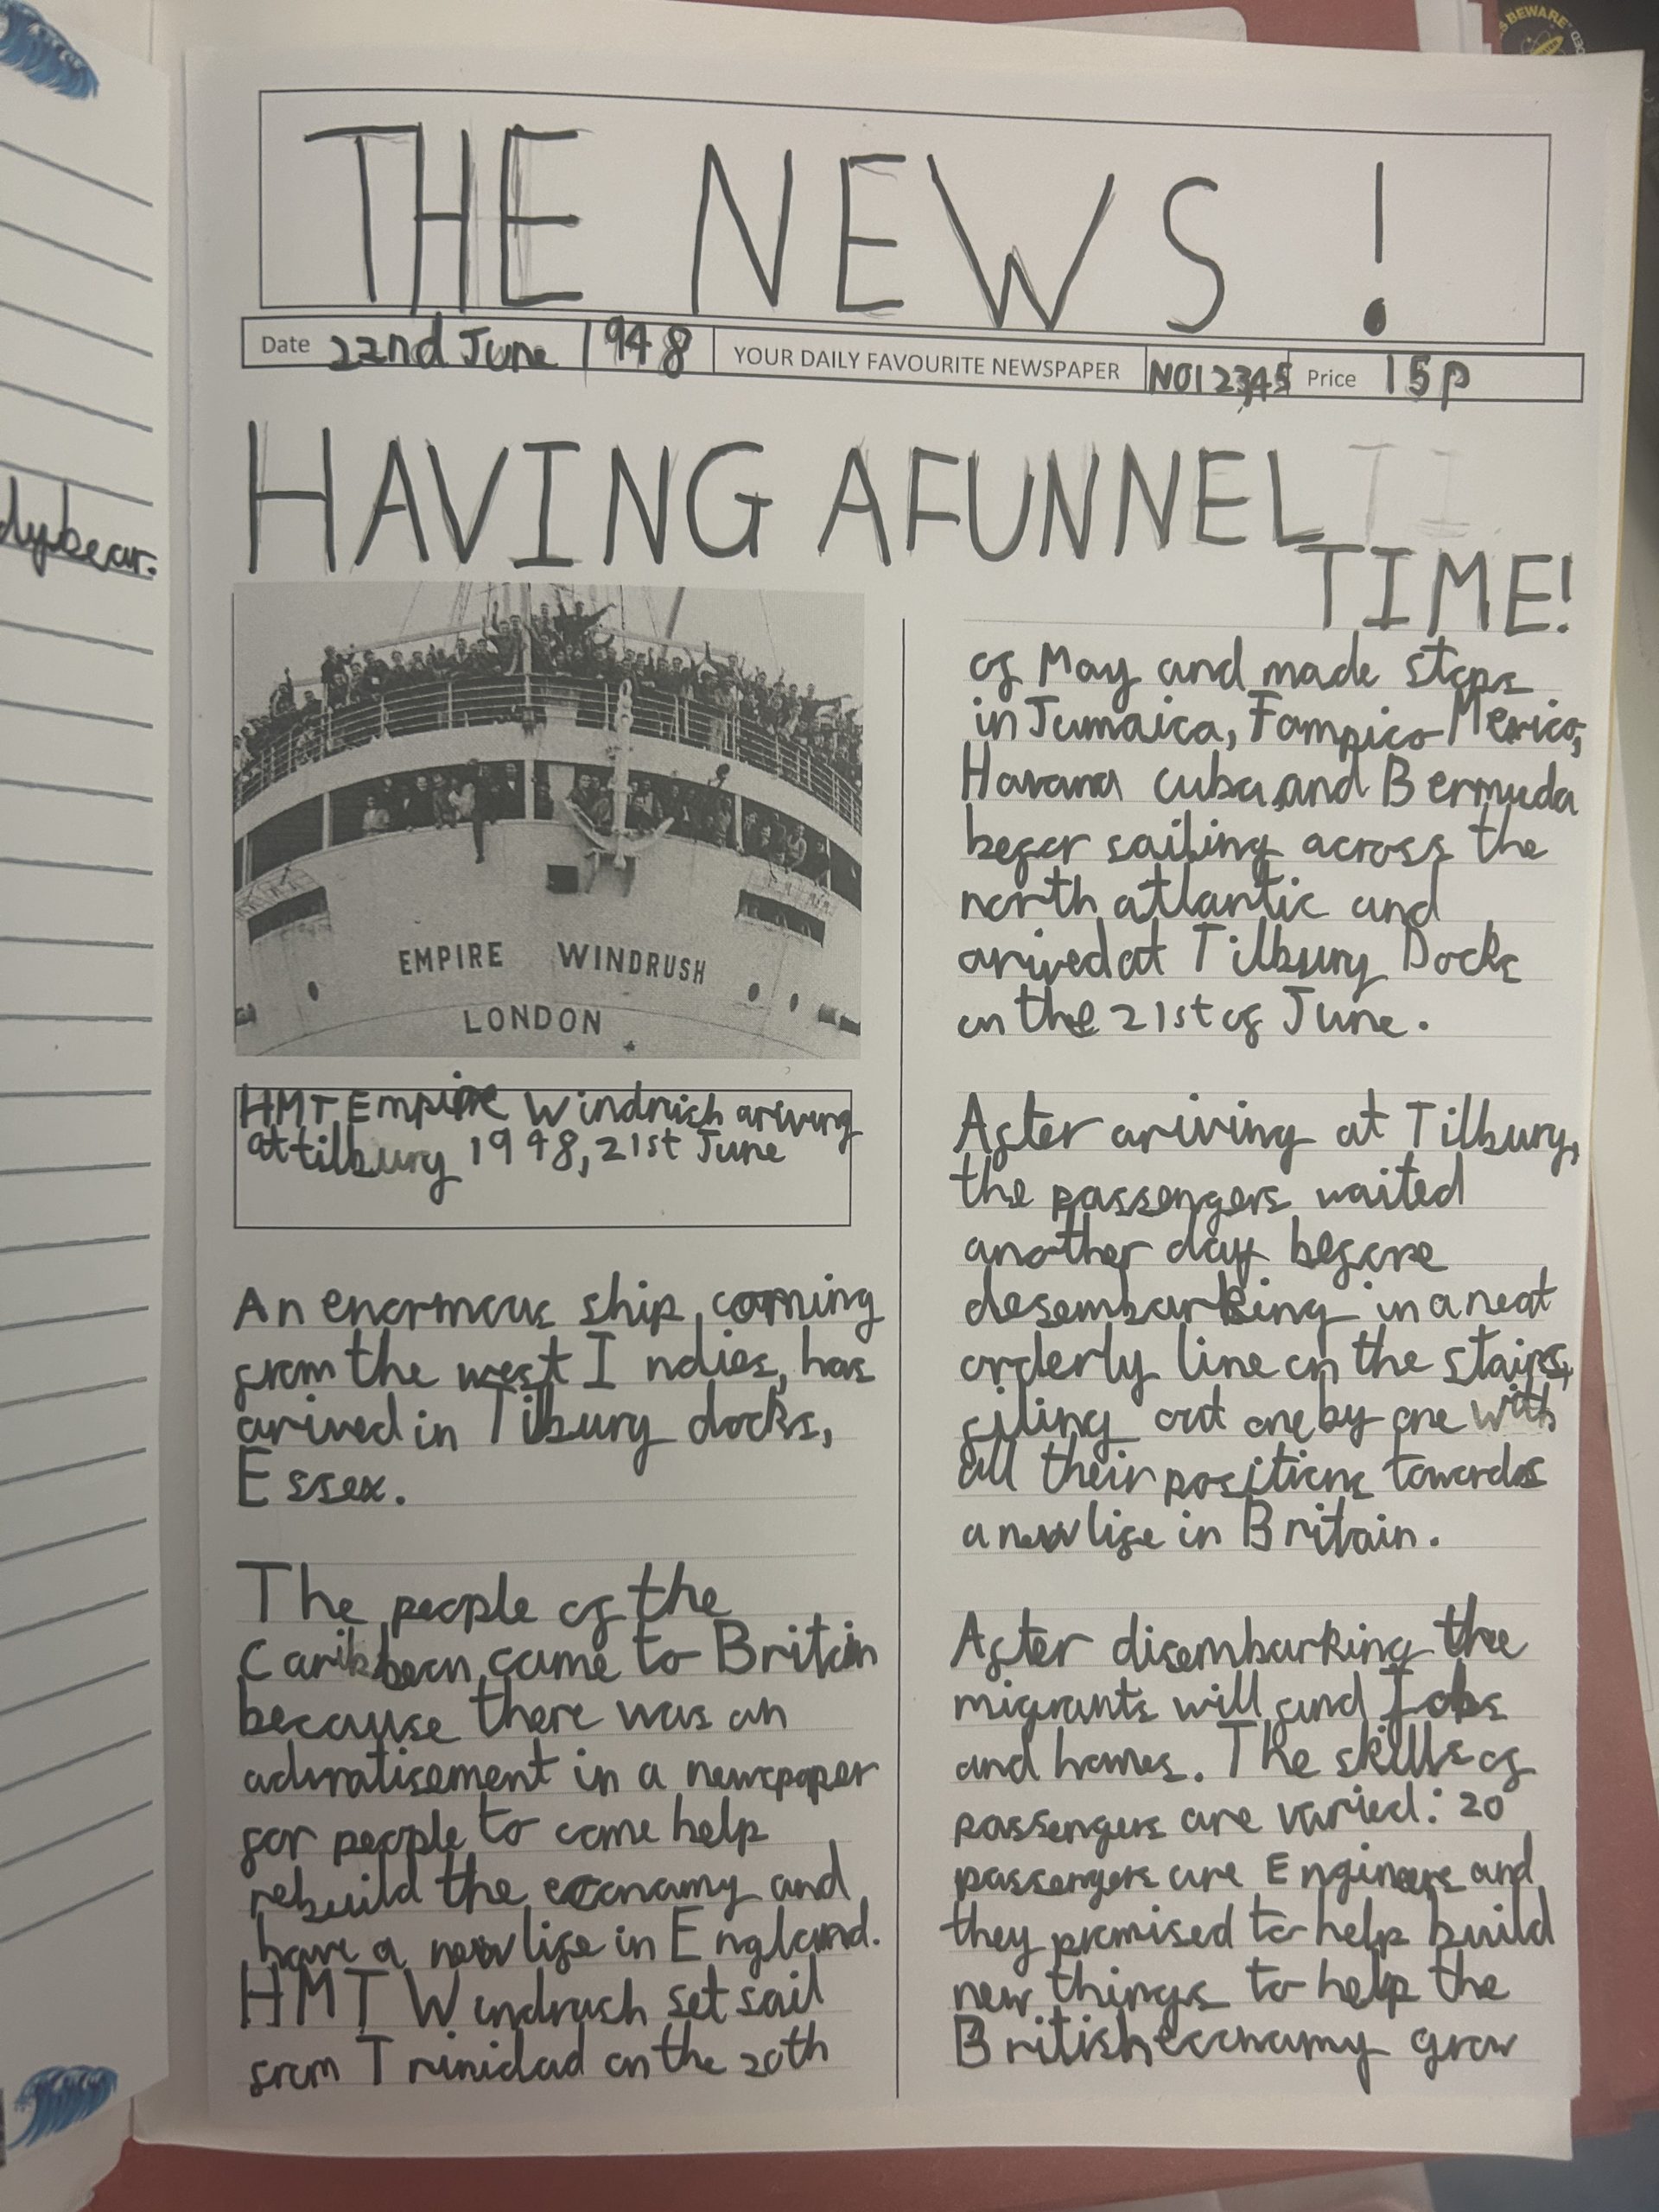 S BEWARE
dybear.
THE NEWS!
Date 22nd June 1948 YOUR DAILY FAVOURITE NEWSPAPER NO12345 Price 15p
HAVING A FUNNEL
TIME!
EMPIRE WINDRUSH
LONDON
HMT Empire Windrush ariving
at tilbury 1948, 21st June
An enormous ship, coming
from the west Indies, has
arived in Tilbury docks,
Essex.
The people of the
Caribbean came to Britain
because there was an
advratisement in a newspaper
for people to come help
rebuild the economy and
have a new life in England.
HMT Windrush set sail
from Trinidad on the 20th
of May and made stops
in Jamaica, Fampico Mexico,
Havana cuba, and Bermuda
befor sailing across the
north atlantic and
arived at Tilbury Docks
on the 21st of June.
After ariving at Tilbury,
the passengers waited
another day before
desembarking in a neat
orderly line on the stairs,
filing out one by one with
all their positions towards
a new life in Britain.
After disembarking the
migrants will find Jobs
and homes. The skills of
passengers are varied: 20
passengers are Engineers and
they promised to help build
new things to help the
British economy grow